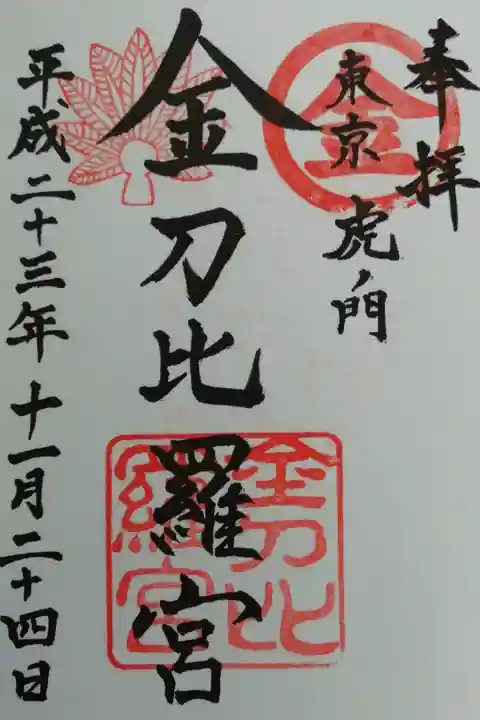 奉拝
東京 虎ノ門
金
金刀比羅宮
金刀比
羅宮
平成二十三年十一月二十四日